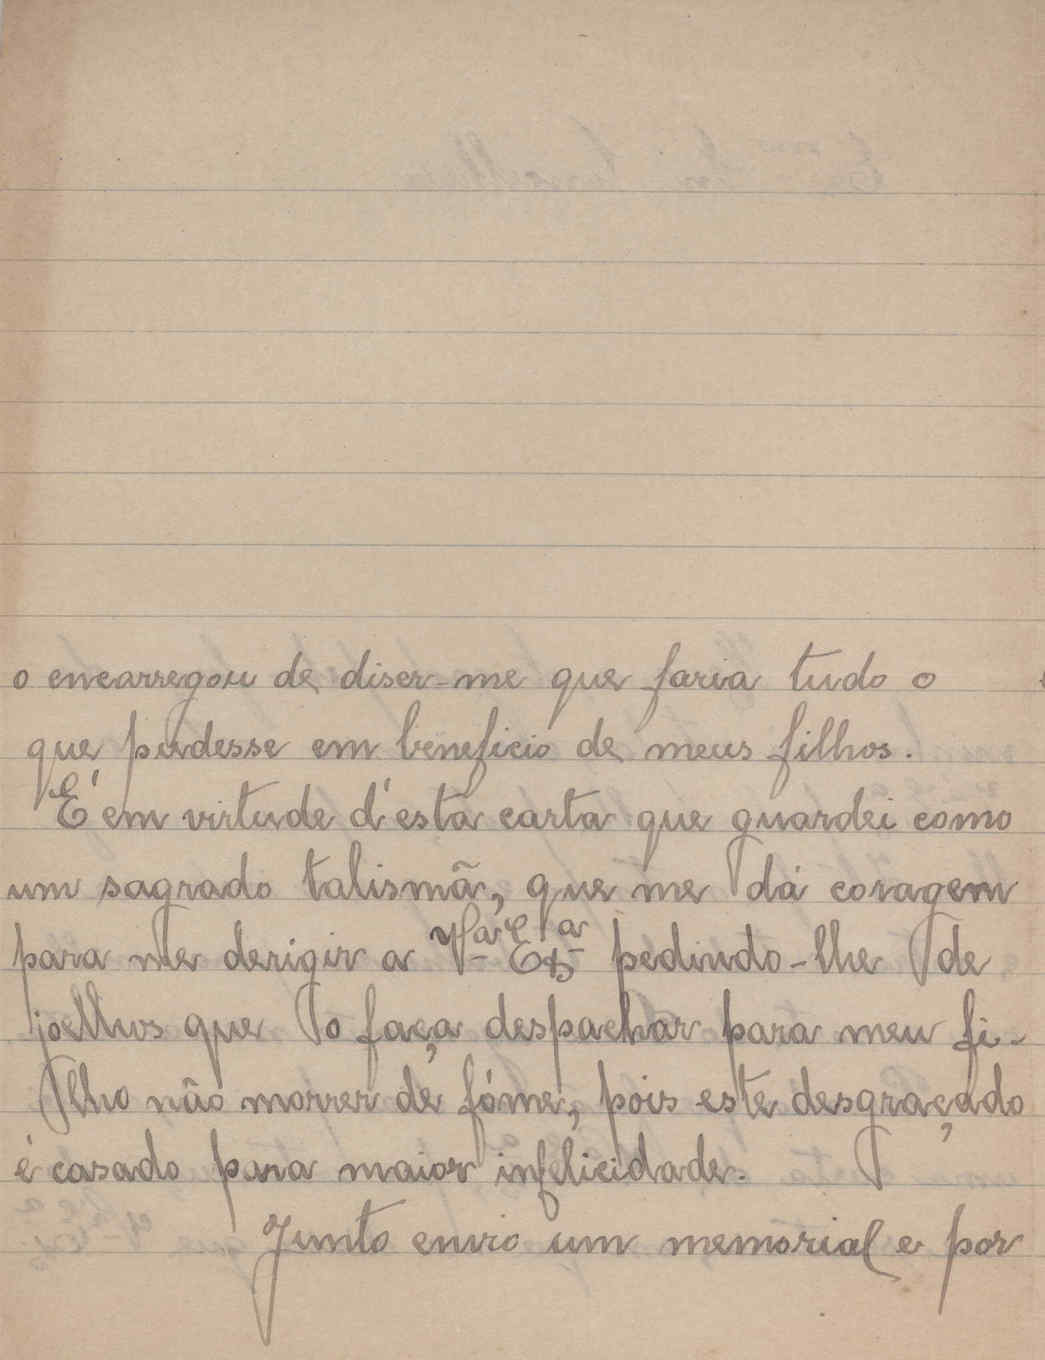 o encarregou de diser-me que faria tudo o
que pudesse em beneficio de meus filhos.
É em virtude d'esta carta que guardei como
um sagrado talismã, que me dá coragem
para me derigir a Vª Exª pedindo-lhe de
joelhos que o faça despachar para meu fi-
lho não morrer de fóme, pois este desgraçado
é casado para maior infelicidade.
Junto envio um memorial e por